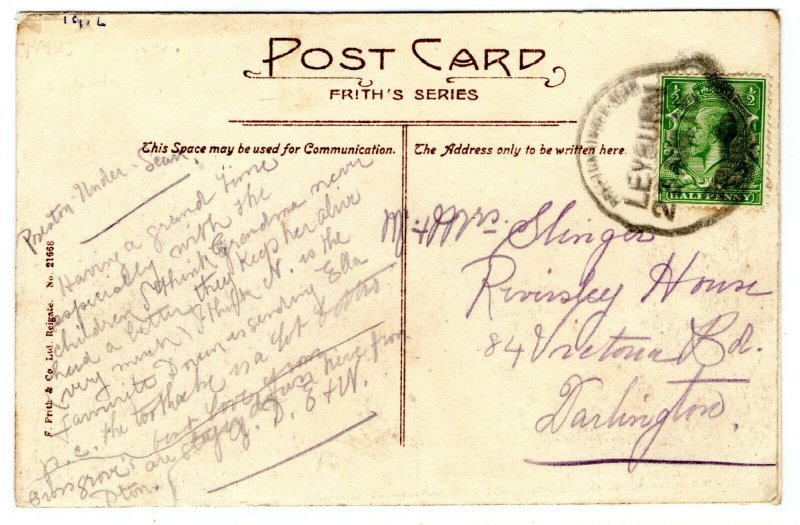 1912
POST CARD
FRITH'S SERIES
This Space may be used for Communication.
The Address only to be written here.
F. Frith & Co. Ltd. Reigate. No. 21668
Preston-Under-Scar.
Having a grand time
especially with the
children I think Grandma never
had a better they keep her alive
(very much) I think N. is the
favourite Doreen is sending Ella
p.c. the toothache is a lot better
best love
are staying here from
D. E + N.
LEYBURN
½ ½
HALFPENNY
Mr + Mrs. Slinger
House
84 Victoria Rd.
Darlington.